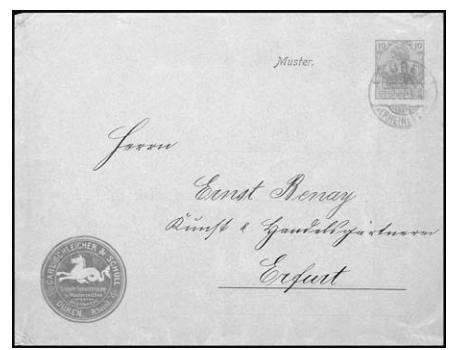 Muster.
10 10
Herrn
Ernst Benary
Kunst & Handelsgärtnerei
Erfurt
CARL SCHLEICHER & SCHÜLL
DÜREN, Rheinl.